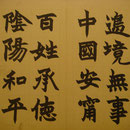 追境無事
中國安甯
百姓承德
陰陽和平